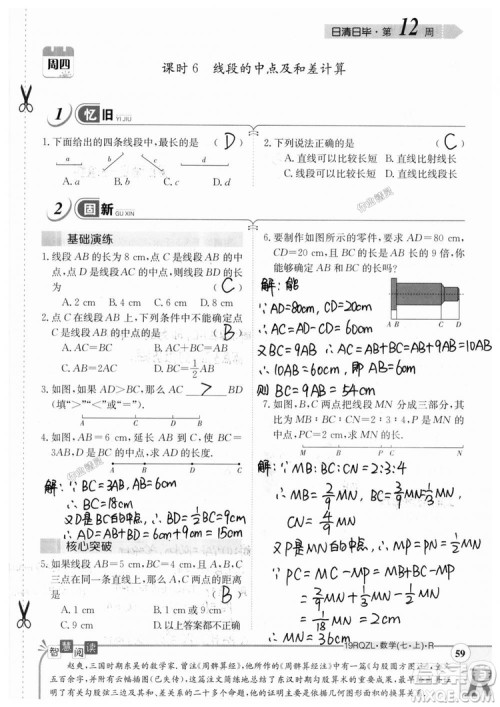 日清日毕·第12周
周四
课时6 线段的中点及和差计算
1 忆旧 YI JIU
1.下面给出的四条线段中，最长的是 （ D ）
a b c d
A. a B. b C. c D. d
2.下列说法正确的是 （ C ）
A.直线可以比较长短 B.直线比射线长
C.线段可以比较长短 D.射线可以比较长短
2 固新 GU XIN
基础演练
1.线段 AB 的长为 8 cm,点 C 为线段 AB 的中点,点 D 为线段 AC 的中点,则线段 BD 的长为 （ C ）
A. 2 cm B. 4 cm C. 6 cm
2.点 C 在线段 AB 上,下列条件中不能确定点 C 是线段 AB 的中点的是 （ B ）
A. AC=BC B. AC+BC=AB
C. AB=2AC
3.如图,如果 AD>BC,那么 AC > BD
(填“>”“<”或“=”).
4.如图,AB=6 cm,延长 AB 到 C,使 BC=
3AB,D 是 BC 的中点,求 AD 的长度.
A B D C
解：∵BC=3AB, AB=6cm
∴BC=18cm
又D是BC的中点, ∴BD=½BC=9cm
∴AD=AB+BD=6cm+9cm=15cm
核心突破
5.如果线段 AB=5 cm,BC=4 cm,且 A,B,C
三点在同一条直线上,那么 A,C 两点的距离
是 （ B ）
A. 1 cm
C. 9 cm D.以上答案都不正确
6.要制作如图所示的零件,要求 AD=80 cm,
CD=20 cm,且 BC 的长是 AB 长的 9 倍,你
能够确定 BC 的长吗?
A B C D
解：能
∵AD=80cm, CD=20cm
∴AC=AD-CD=60cm
又BC=9AB ∴AC=AB+BC=AB+9AB=10AB
∴10AB=60cm, ∴AB=6cm
则BC=9AB=54cm
7.如图,B,C 两点把线段 MN 分成三部分,其
比为 MB:BC:CN=2:3:4,
解：∵MB:BC:CN=2:3:4
∴MB=2/9 MN, BC=3/9 MN=1/3 MN,
CN=4/9 MN
又P是MN的中点, ∴PM=1/2 MN
∴PC=MC-MP=
2/9 MN+1/3 MN-1/2 MN
=1/18 MN=2cm
∴MN=36cm
智慧阅读
19RQZL·数学(七·上)·R
59
赵爽,三国时期东吴的数学家,曾注《周髀算经》,他所作的《周髀算经注》中有一篇《勾股圆方图注》,全文
五百余字,并附有云幅插图(已失传),这篇注文简练地总结了东汉时期勾股算术的重要成果,